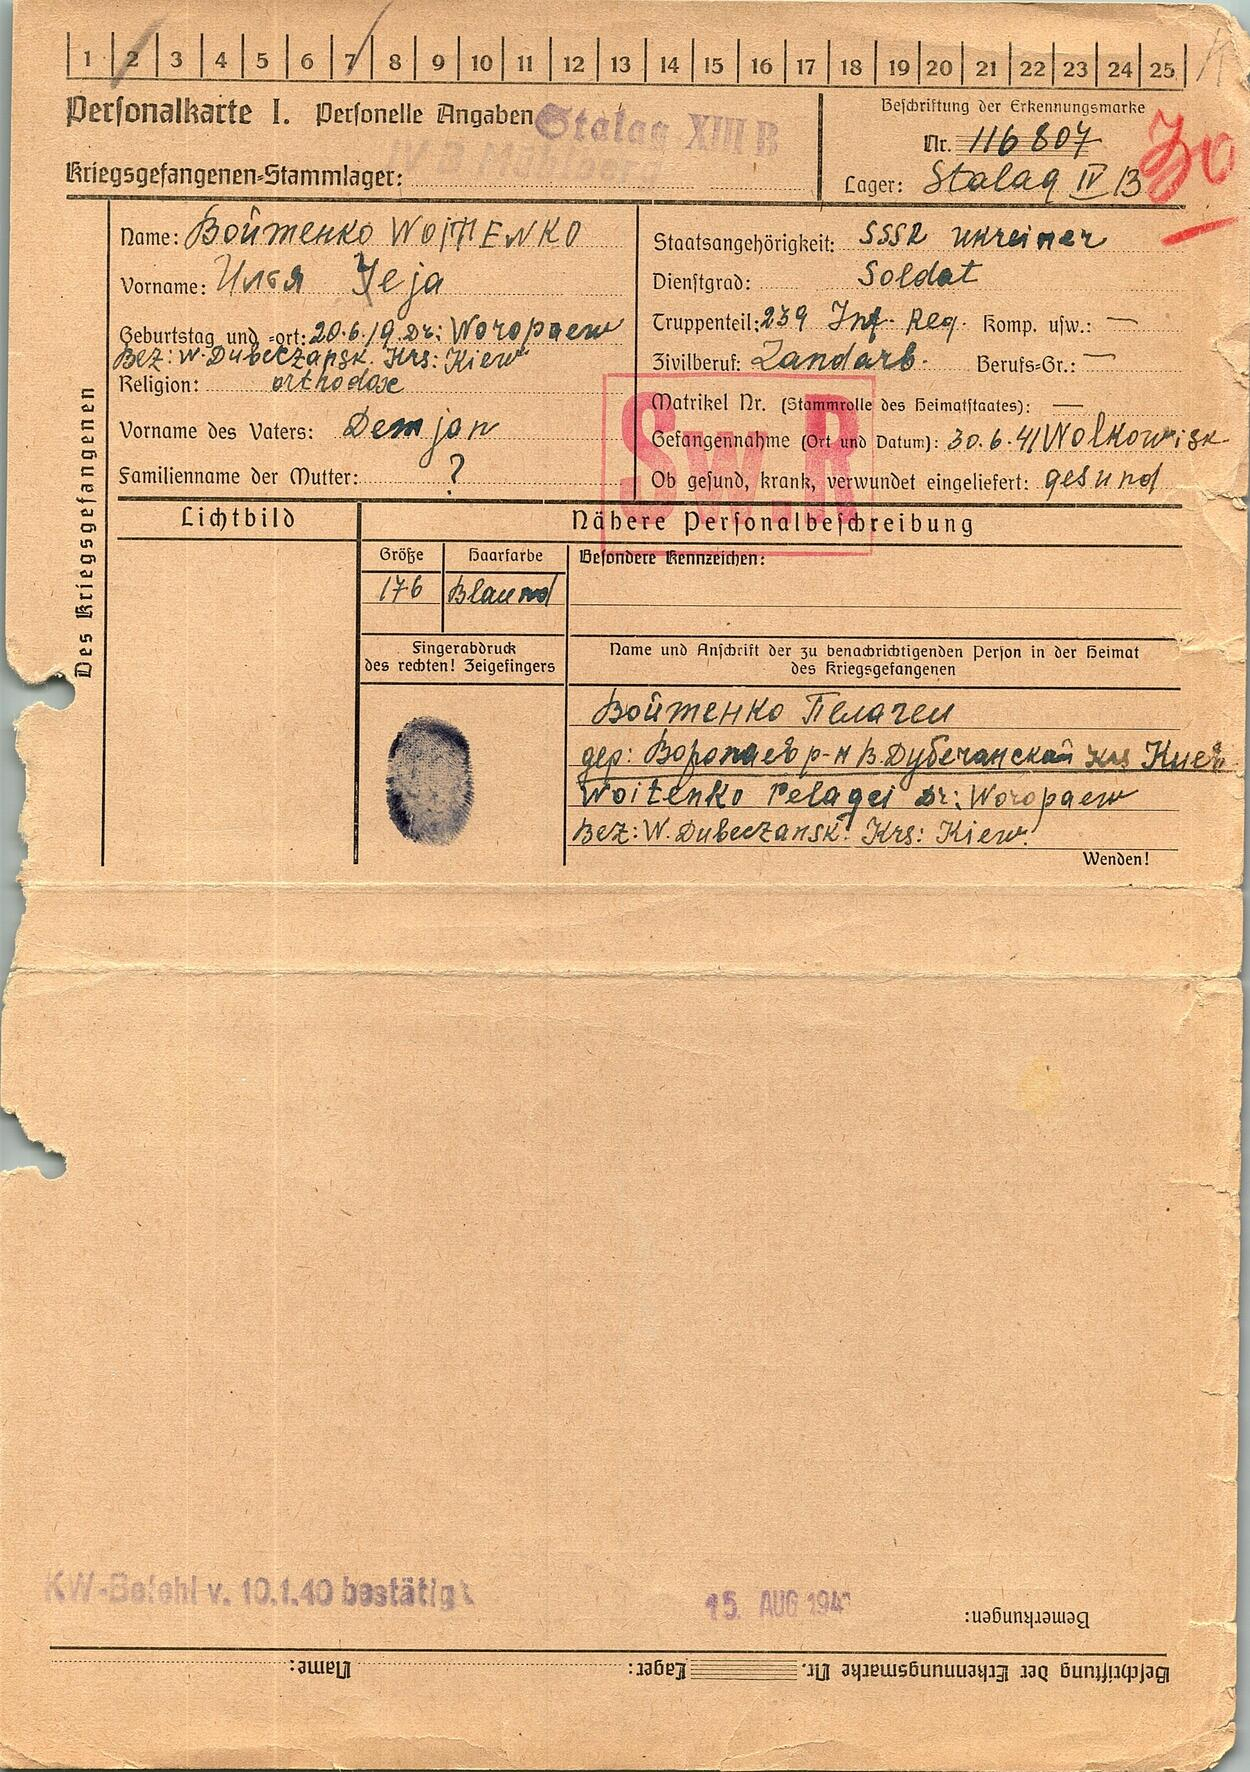 1 2 3 4 5 6 7 8 9 10 11 12 13 14 15 16 17 18 19 20 21 22 23 24 25
Personalkarte I. Personelle Angaben
Stalag XIII B
IV B Mühlberg
Kriegsgefangenen-Stammlager:
Beschriftung der Erkennungsmarke
Nr. 116807
Lager: Stalag IV B
Des Kriegsgefangenen
Name: Войтенко WOJTENKO
Vorname: Илья Jeja
Geburtstag und -ort: 20.6.19. Dr: Woropaew
Bez: W. Dubeczansk. Krs: Kiew
Religion: orthodox
Vorname des Vaters: Demjan
Familienname der Mutter: ?
Staatsangehörigkeit: SSSR Ukreiner
Dienstgrad: Soldat
Truppenteil: 239 Inf. Reg. Komp. usw.: —
Zivilberuf: Landarb. Berufs-Gr.: —
Matrikel Nr. (Stammrolle des Heimatstaates): —
Gefangennahme (Ort und Datum): 30.6.41 Wolkowisk
Ob gesund, krank, verwundet eingeliefert: gesund
Sw.R
Lichtbild
Nähere Personalbeschreibung
Größe Haarfarbe Besondere Kennzeichen:
176 Blaund
Fingerabdruck
des rechten! Zeigefingers
Name und Anschrift der zu benachrichtigenden Person in der Heimat
des Kriegsgefangenen
Войтенко Пелагеи
дер: Воропаев р-н В. Дубечанский Krs Киев
Woitenko Pelagei Dr: Woropaew
Bez: W. Dubeczansk. Krs: Kiew.
Wenden!
KW-Befehl v. 10.1.40 bestätigt
15. AUG 194
Bemerkungen:
Beschriftung der Erkennungsmarke Nr. Lager: Name: